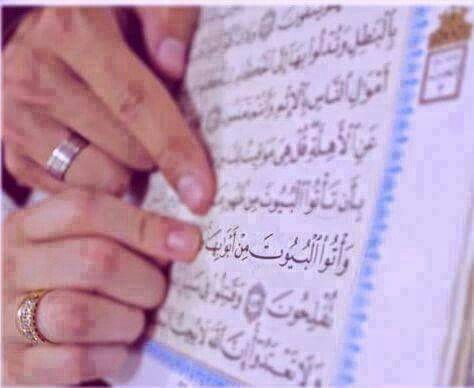 بِالْبَاطِلِ وَتُدْلُوا بِهَا إِلَى
أَمْوَالِ النَّاسِ بِالْإِثْمِ وَأَنْتُمْ
عَنِ الْأَهِلَّةِ قُلْ هِيَ مَوَاقِيتُ
بِأَن تَأْتُوا الْبُيُوتَ مِن
وَأْتُوا الْبُيُوتَ مِنْ أَبْوَابِهَا
تُفْلِحُونَ وَقَاتِلُوا فِي
وَلَا تَعْتَدُوا إِنَّ